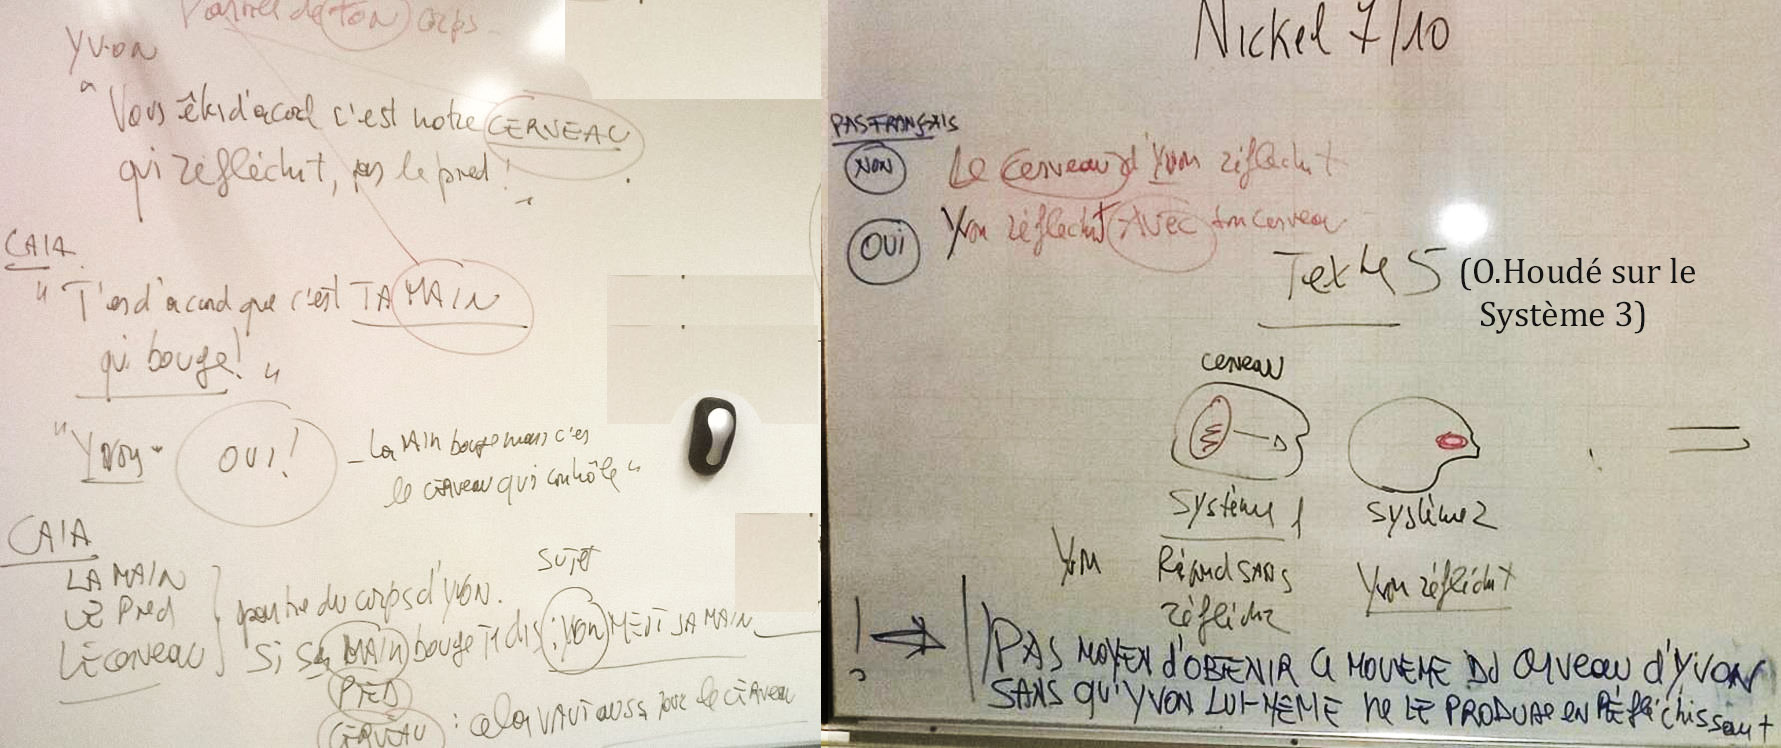 partie de ton corps
YVON
" Vous êtes d'accord c'est notre CERVEAU
qui réfléchit, pas le pied! "
CAIA
" T'es d'accord que c'est TA MAIN
qui bouge! "
"Yvon" OUI! - La MAIN bouge mais c'es
le cerveau qui contrôle "
CAIA
LA MAIN
LE PIED
LE cerveau
partie du corps d'Yvon.
SUJET
Si SA MAIN bouge TU dis : Yvon MEUT SA MAIN
PIED
CERVEAU : cela VAUT aussi pour le CERVEAU
Nickel 7/10
PAS FRANÇAIS
NON Le cerveau d'Yvon réfléchit
OUI Yvon réfléchit AVEC son cerveau
Texte 5 (O.Houdé sur le
Système 3)
cerveau
Système 1 Système 2
Yvon Répond SANS réfléchir
Yvon réfléchit
! PAS MOYEN d'OBTENIR CE MOUVEME DU cerveau d'YVON
SANS QU'YVON LUI-MÊME NE LE PRODUISE EN RÉFléchissant